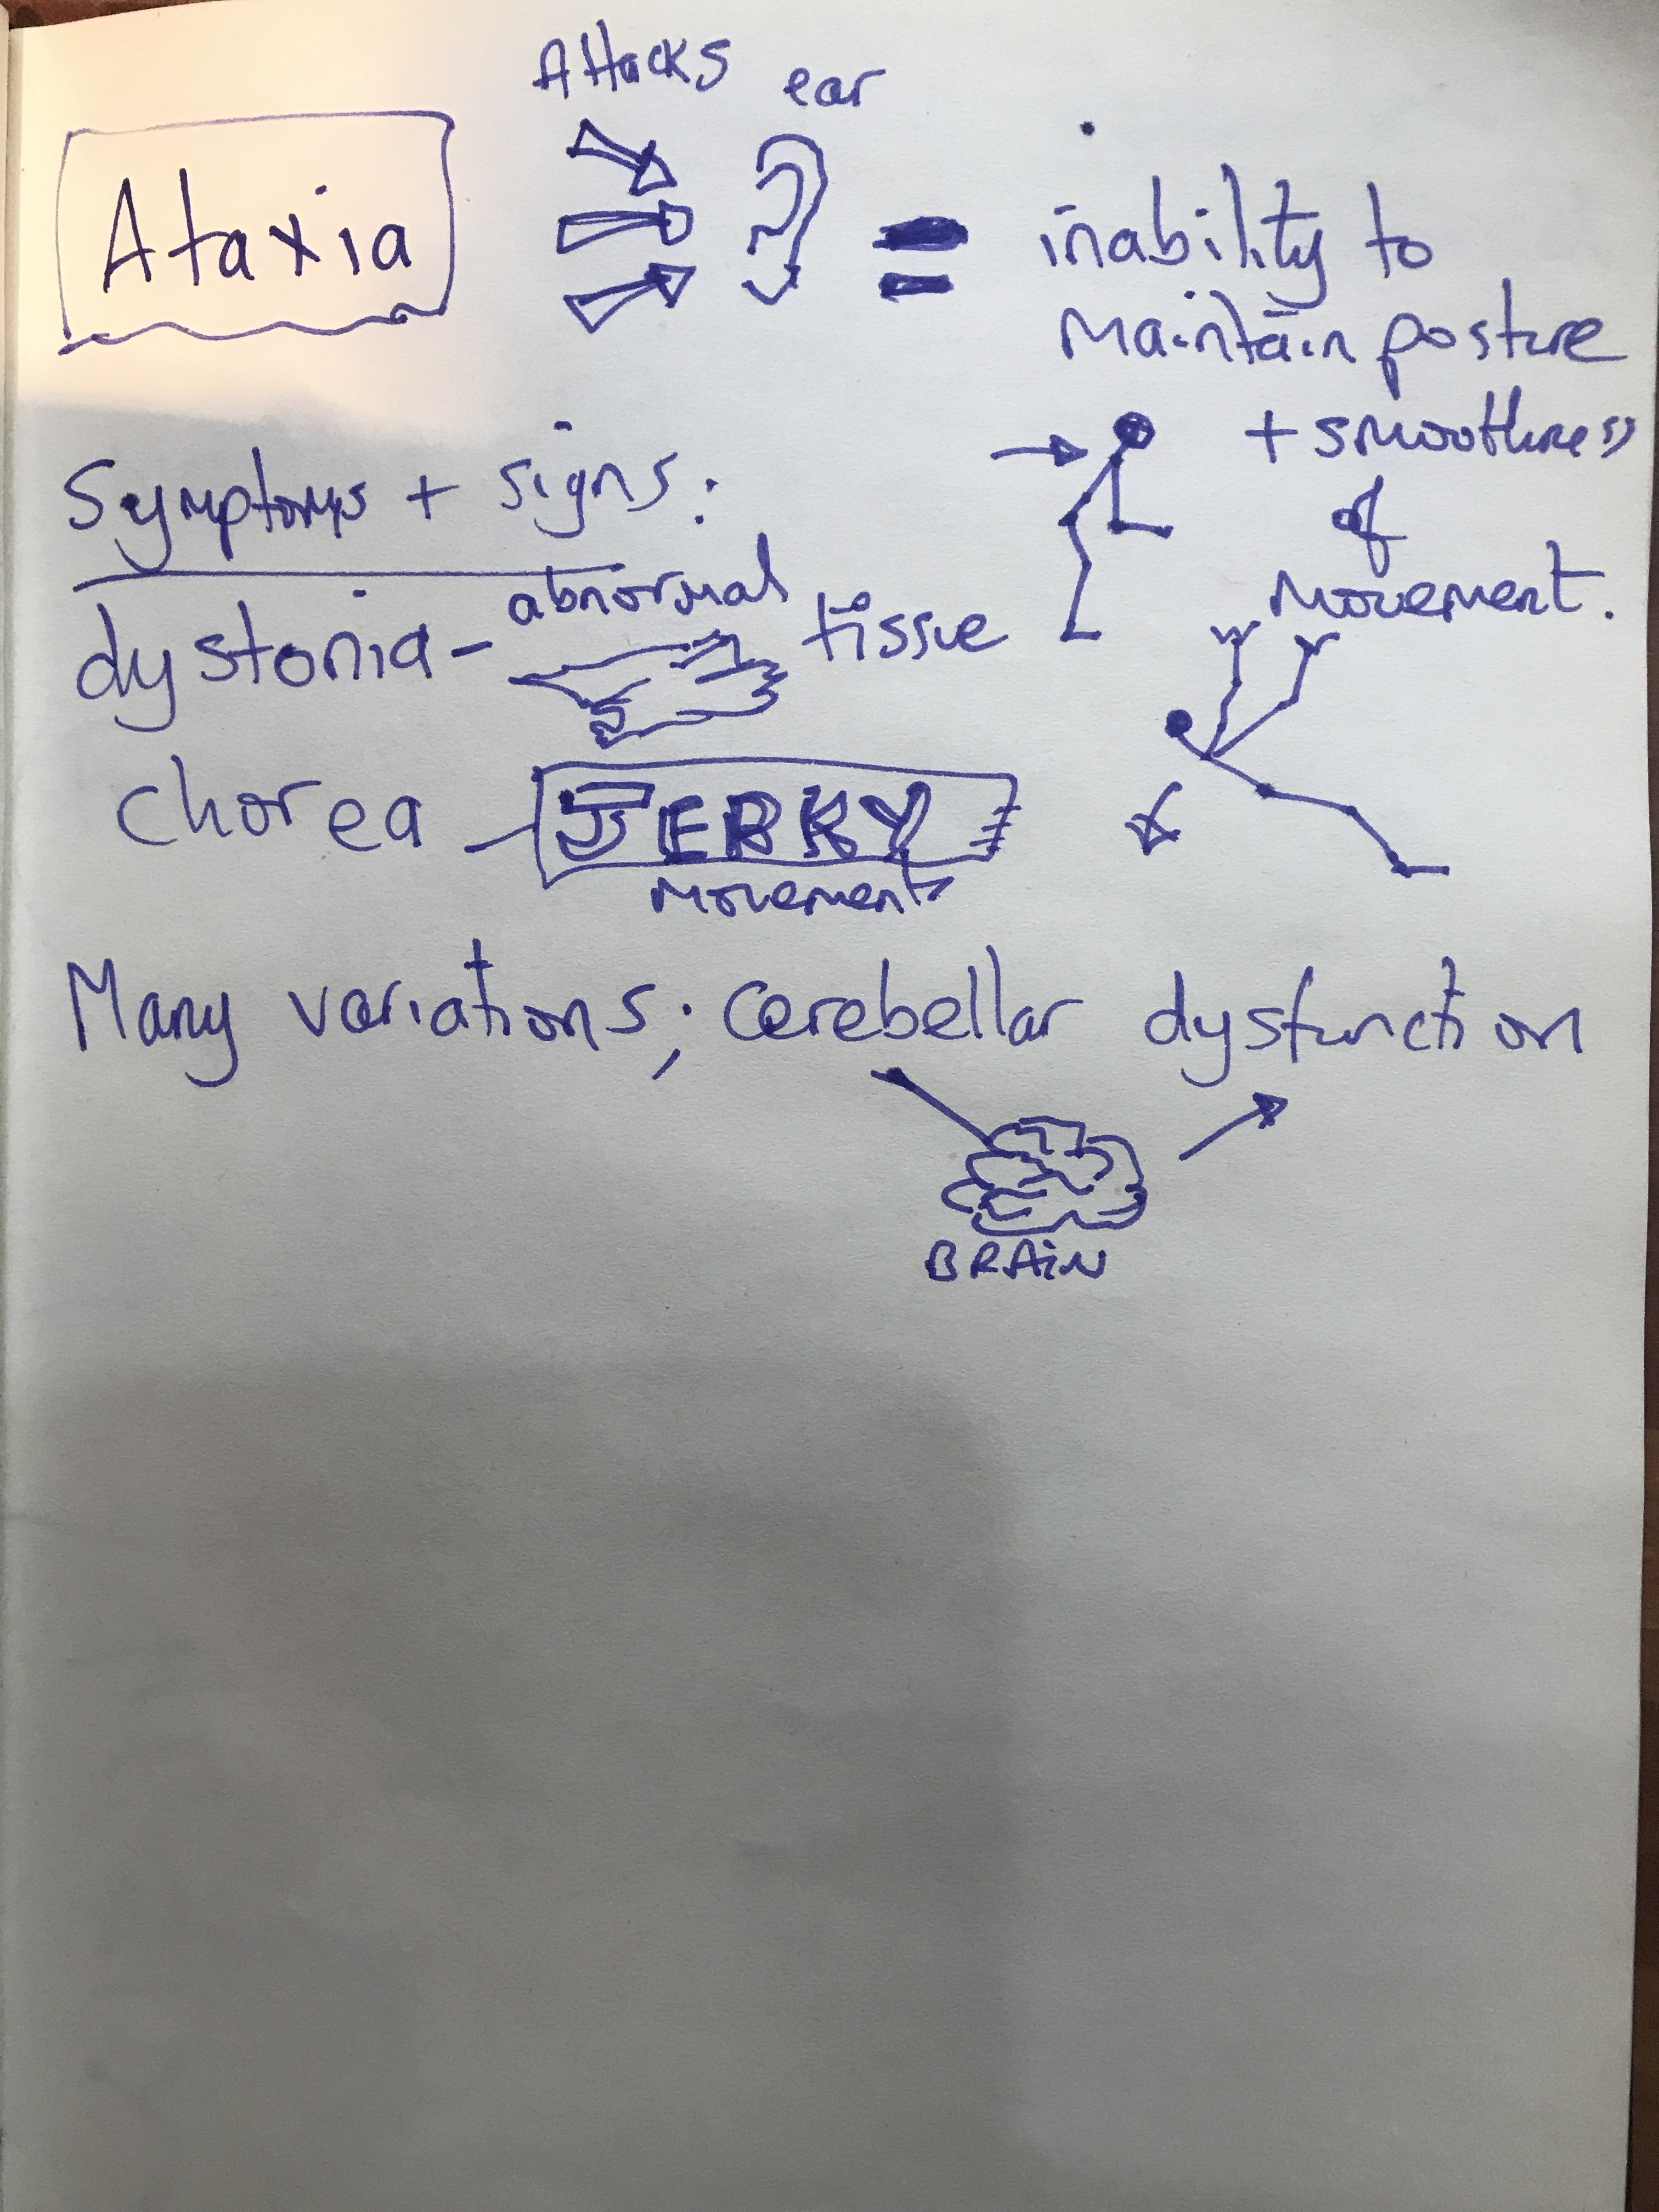 Attacks ear
Ataxia
= inability to
maintain posture
+ smoothness
of
movement.
Symptoms + signs:
dystonia - abnormal tissue
chorea - JERKY
movements
Many variations; cerebellar dysfunction
BRAiN